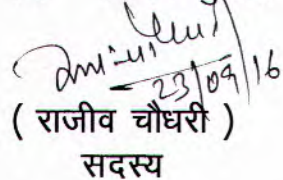 23/09/16
( राजीव चौधरी )
सदस्य